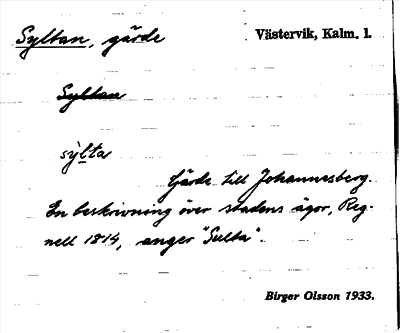 Syltan, gärde
Västervik, Kalm. l.
Syltan
sỳlta
Gärde till Johannesberg.
En beskrivning över stadens ägor, Reg-
nell 1814, anger "Sulta".
Birger Olsson 1933.